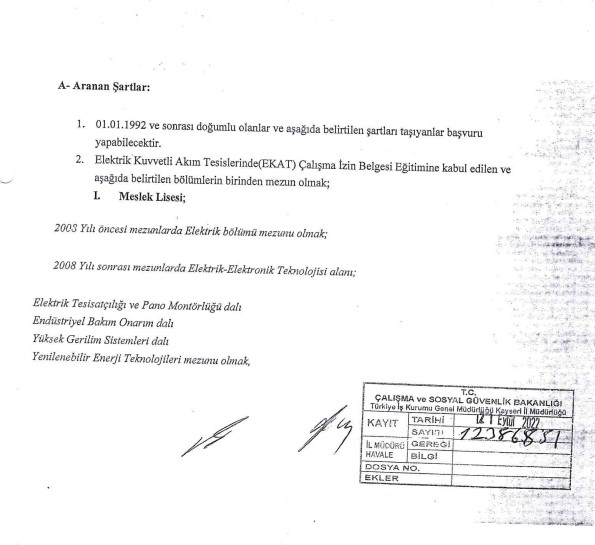 A- Aranan Şartlar:
1. 01.01.1992 ve sonrası doğumlu olanlar ve aşağıda belirtilen şartları taşıyanlar başvuru
yapabilecektir.
2. Elektrik Kuvvetli Akım Tesislerinde(EKAT) Çalışma İzin Belgesi Eğitimine kabul edilen ve
aşağıda belirtilen bölümlerin birinden mezun olmak;
I. Meslek Lisesi;
Yılı öncesi mezunlarda Elektrik bölümü mezunu olmak;
2008 Yılı sonrası mezunlarda Elektrik-Elektronik Teknolojisi alanı;
Elektrik Tesisatçılığı ve Pano Montörlüğü dalı
Endüstriyel Bakım Onarım dalı
Yüksek Gerilim Sistemleri dalı
Yenilenebilir Enerji Teknolojileri mezunu olmak,
T.C.
ÇALIŞMA ve SOSYAL GÜVENLİK BAKANLIĞI
Türkiye İş Kurumu Genel Müdürlüğü Kayseri İl Müdürlüğü
KAYIT TARİHİ Eylül 2022
SAYISI
İL MÜDÜRÜ GEREĞİ
HAVALE BİLGİ
DOSYA NO.
EKLER